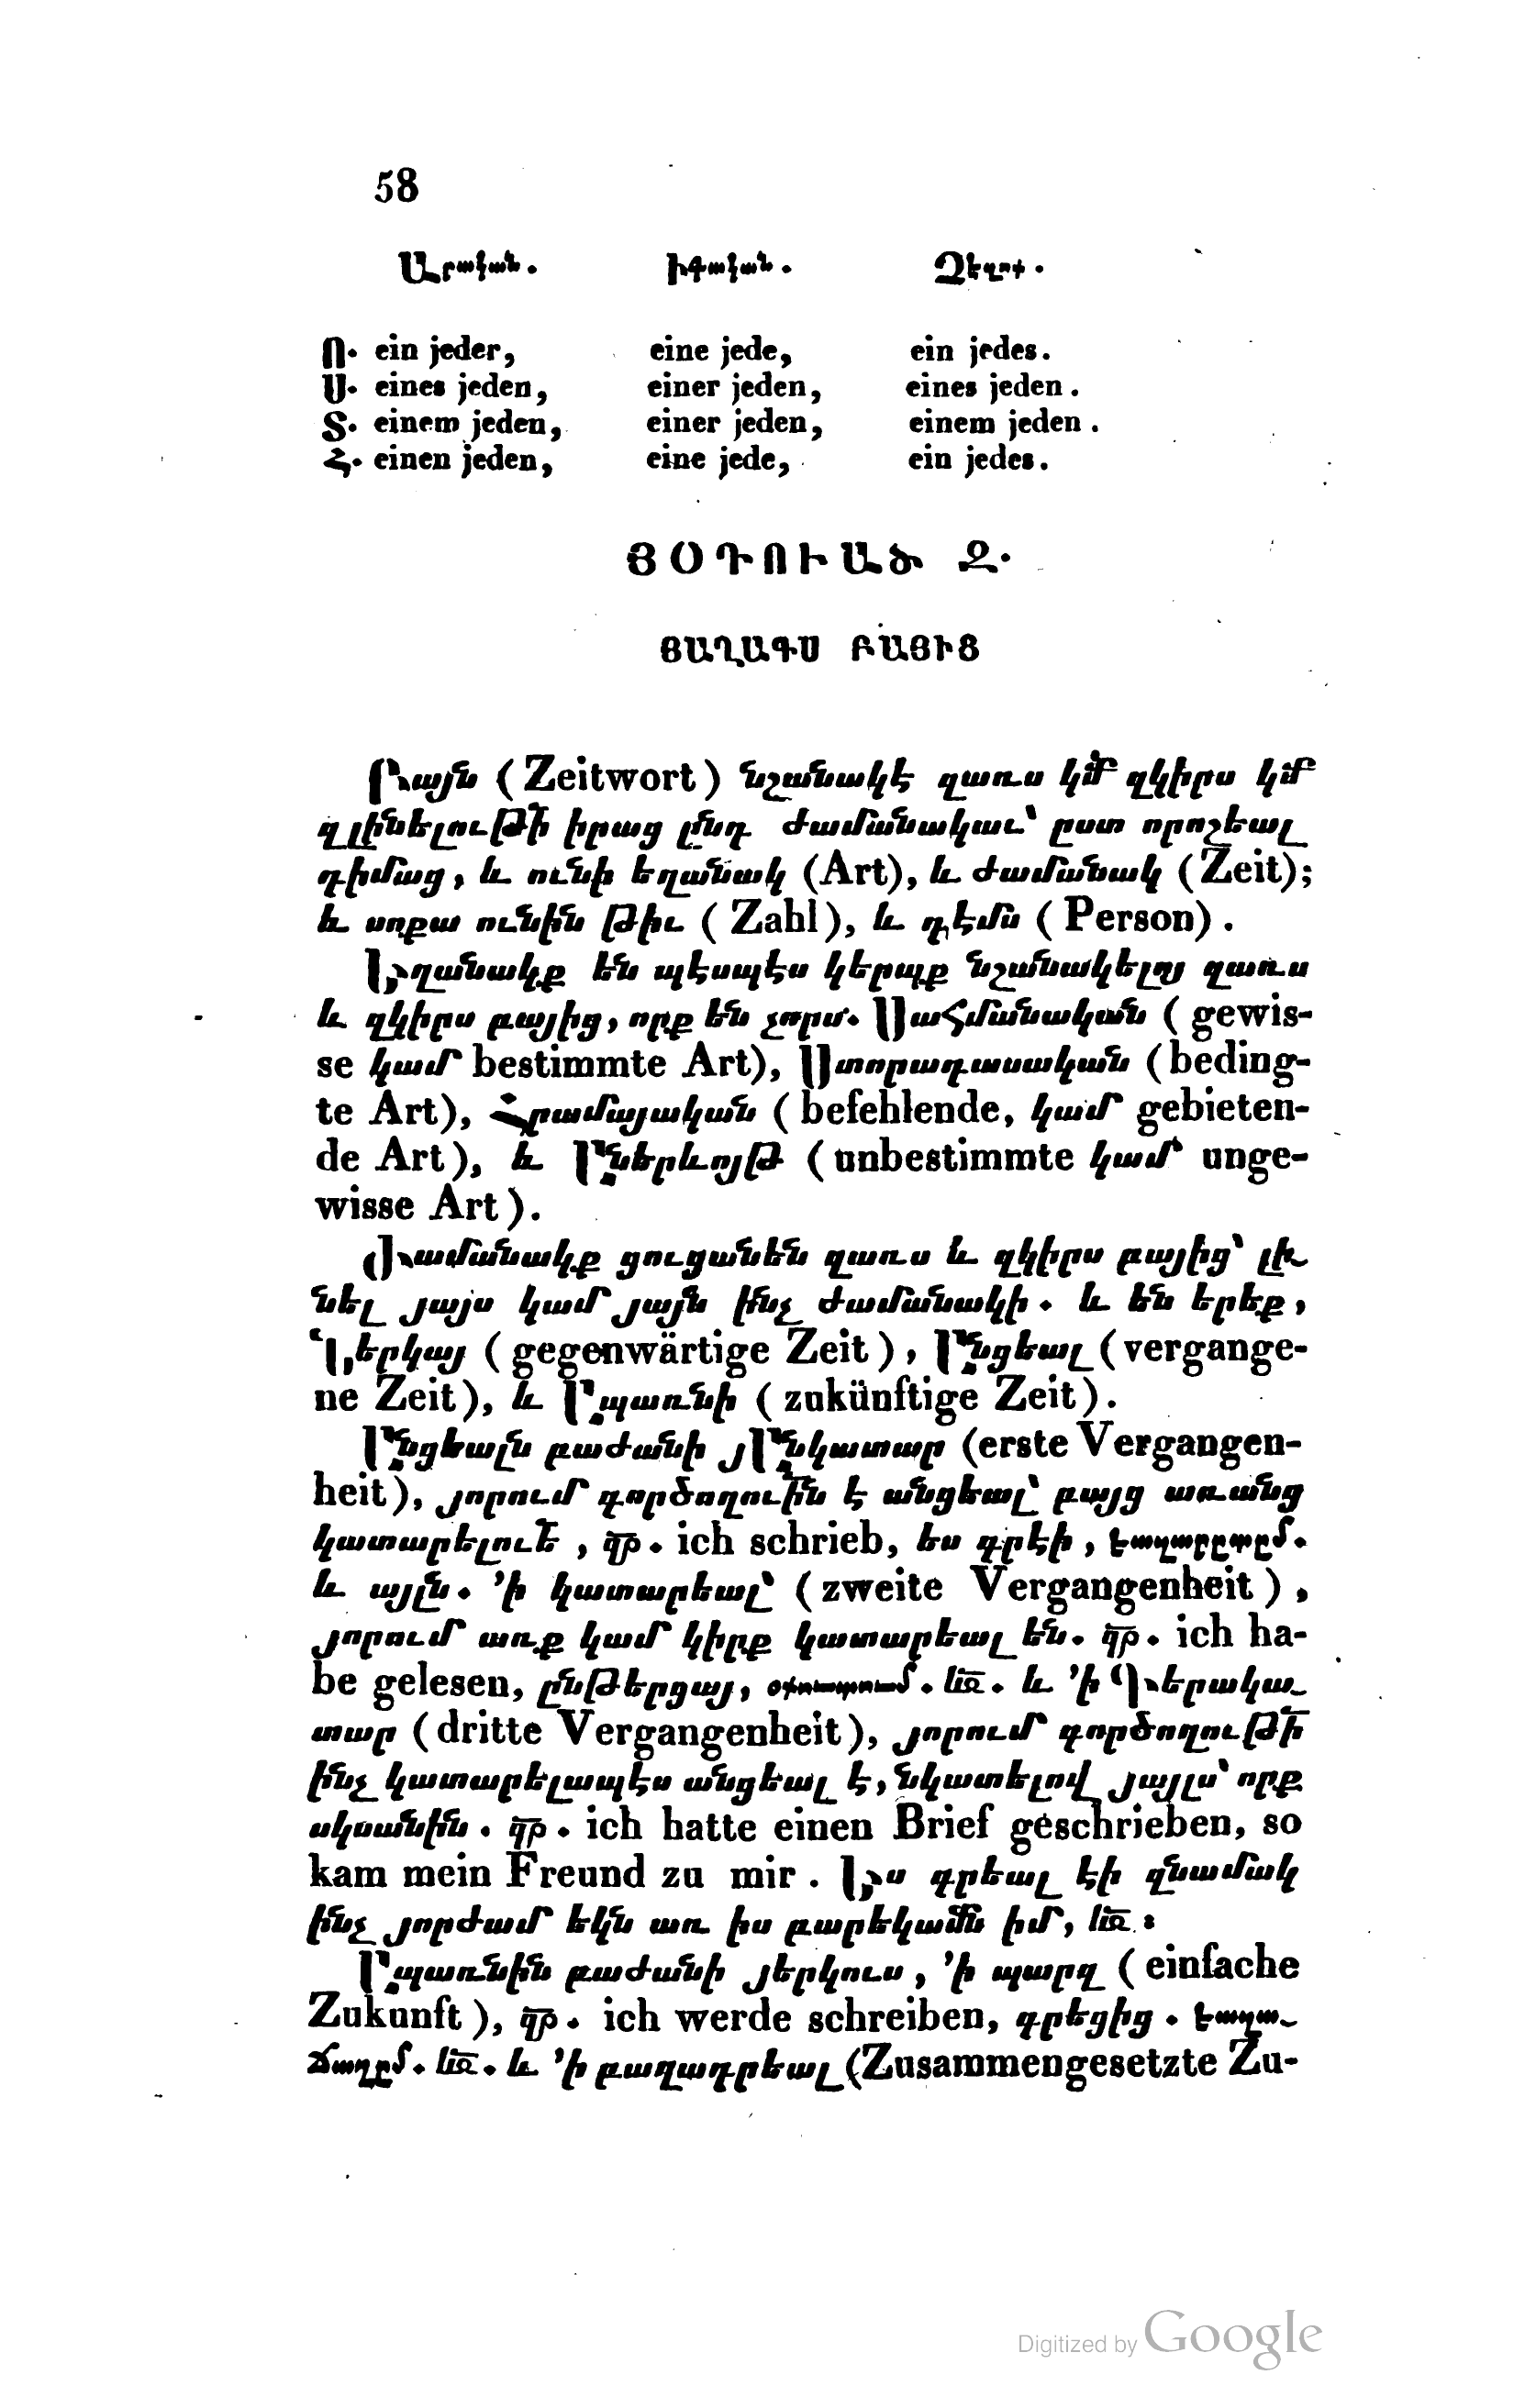 58
Արական. Իգական. Չեզոք.
Ո. ein jeder, eine jede, ein jedes.
Ս. eines jeden, einer jeden, eines jeden.
Տ. einem jeden, einer jeden, einem jeden.
Հ. einen jeden, eine jede, ein jedes.
ՅՕԴՈՒԱԾ Զ.
ՅԱՂԱԳՍ ԲԱՅԻՑ
Բայն (Zeitwort) նշանակէ զառս կմ̃ զկիրս կմ̃
զլինելուԹի̃ իրաց ընդ ժամանակաւ՝ ըստ որոշեալ
դիմաց, և ունի եղանակ (Art), և ժամանակ (Zeit);
և սոքա ունին Թիւ (Zahl), և դէմս (Person).
Եղանակք են պէսպէս կերպք նշանակելոյ զառս
և զկիրս բայից, որք են չորս. Սահմանական (gewis-
se կամ bestimmte Art), Ստորադասական (beding-
te Art), Հրամայական (befehlende, կամ gebieten-
de Art), և Աներևոյթ (unbestimmte կամ unge-
wisse Art).
Ժամանակք ցուցանեն զառս և զկիրս բայից՝ լի-
նել յայս կամ յայն ինչ ժամանակի. և են երեք,
Ներկայ (gegenwärtige Zeit), Անցեալ (vergange-
ne Zeit), և Ապառնի (zukünftige Zeit).
Անցեալն բաժանի յԱնկատար (erste Vergangen-
heit), յորում գործողուի̃ն է անցեալ՝ բայց առանց
կատարելուե̃, զր̃. ich schrieb, ես գրէի, եազարըտըմ.
և այլն. ՚ի կատարեալ՝ (zweite Vergangenheit),
յորում առք կամ կիրք կատարեալ են. զր̃. ich ha-
be gelesen, ընթերցայ, օխուտում. ևլ̃. և ՚ի Գերակա-
տար (dritte Vergangenheit), յորում գործողուԹի̃
ինչ կատարելապէս անցեալ է, նկատելով յայլս՝ որք
սկսանին. զր̃. ich hatte einen Brief geschrieben, so
kam mein Freund zu mir. Ես գրեալ էի զնամակ
ինչ յորժամ եկն առ իս բարեկամն իմ, ևլ̃:
Ապառնին բաժանի յերկուս, ՚ի պարզ (einfache
Zukunft), զր̃. ich werde schreiben, գրեցից. եազա-
ճաղըմ. ևլ̃. և ՚ի բաղադրեալ (Zusammengesetzte Zu-
Digitized by Google